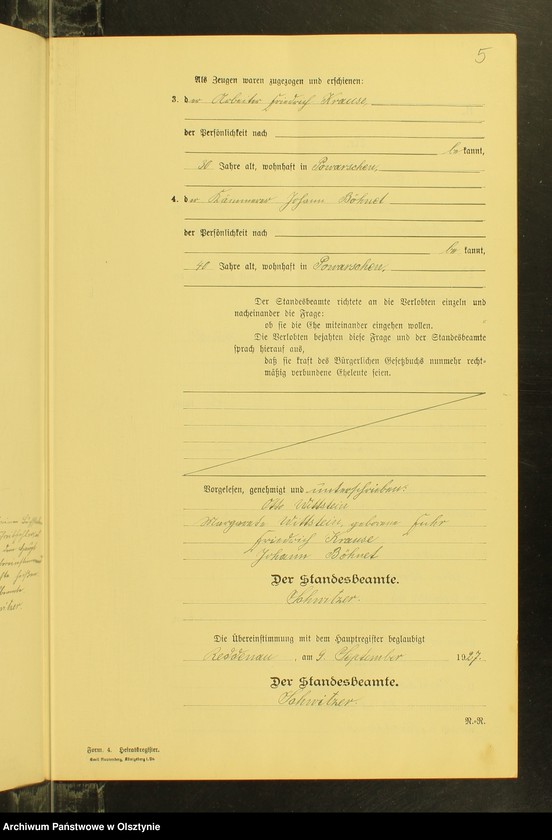 5
Als Zeugen waren zugezogen und erschienen:
3. der Arbeiter Friedrich Krause,
der Persönlichkeit nach
be kannt,
30 Jahre alt, wohnhaft in Powarschen,
4. der Kämmerer Johann Böhnet
der Persönlichkeit nach
be kannt,
40 Jahre alt, wohnhaft in Powarschen,
Der Standesbeamte richtete an die Verlobten einzeln und
nacheinander die Frage:
ob sie die Ehe miteinander eingehen wollen.
Die Verlobten bejahten diese Frage und der Standesbeamte
sprach hierauf aus,
daß sie kraft des Bürgerlichen Gesetzbuchs nunmehr recht-
mäßig verbundene Eheleute seien.
Vorgelesen, genehmigt und unterschrieben:
Otto Wittstein
Margarete Wittstein, geborene Fuhr
Friedrich Krause
Johann Böhnet
Der Standesbeamte.
Schwitzer.
Die Übereinstimmung mit dem Hauptregister beglaubigt
Reddenau, am 9. September 1927.
Der Standesbeamte.
Schwitzer.
N.-R.
Form. 4. Heiratsregister.
Archiwum Państwowe w Olsztynie